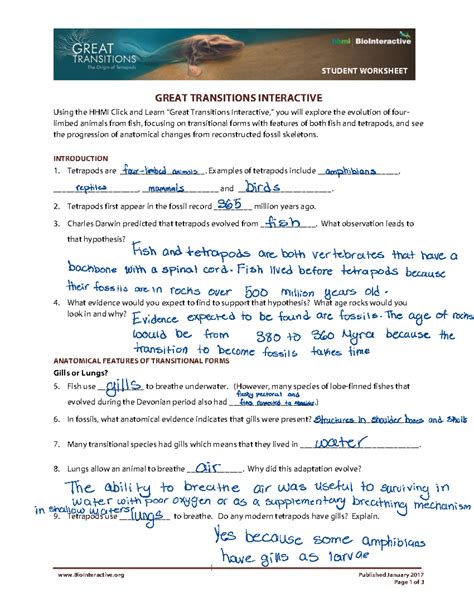 GREAT
TRANSITIONS
The Origin of Tetrapods
hhmi | BioInteractive
STUDENT WORKSHEET
GREAT TRANSITIONS INTERACTIVE
Using the HHMI Click and Learn "Great Transitions Interactive," you will explore the evolution of four-
limbed animals from fish, focusing on transitional forms with features of both fish and tetrapods, and see
the progression of anatomical changes from reconstructed fossil skeletons.
INTRODUCTION
1. Tetrapods are four-limbed animals. Examples of tetrapods include amphibians,
reptiles, mammals and birds.
2. Tetrapods first appear in the fossil record 365 million years ago.
3. Charles Darwin predicted that tetrapods evolved from fish. What observation leads to
that hypothesis? Fish and tetrapods are both vertebrates that have a
backbone with a spinal cord. Fish lived before tetrapods because
their fossils are in rocks over 500 million years old.
4. What evidence would you expect to find to support that hypothesis? What age rocks would you
look in and why? Evidence expected to be found are fossils. The age of rocks
would be from 380 to 360 Myra because the
transition to become fossils takes time
ANATOMICAL FEATURES OF TRANSITIONAL FORMS
Gills or Lungs?
5. Fish use gills to breathe underwater. (However, many species of lobe-finned fishes that
evolved during the Devonian period also had fleshy pectoral and
.)
6. In fossils, what anatomical evidence indicates that gills were present? Structures in shoulder bones and skulls
7. Many transitional species had gills which means that they lived in water.
8. Lungs allow an animal to breathe air. Why did this adaptation evolve?
The ability to breathe air was useful to surviving in
water with poor oxygen or as a supplementary breathing mechanism
in shallow waters
9. Tetrapods use lungs to breathe. Do any modern tetrapods have gills? Explain.
Yes because some amphibians
have gills as larvae
www.BioInteractive.org
Published January 2017
Page 1 of 3